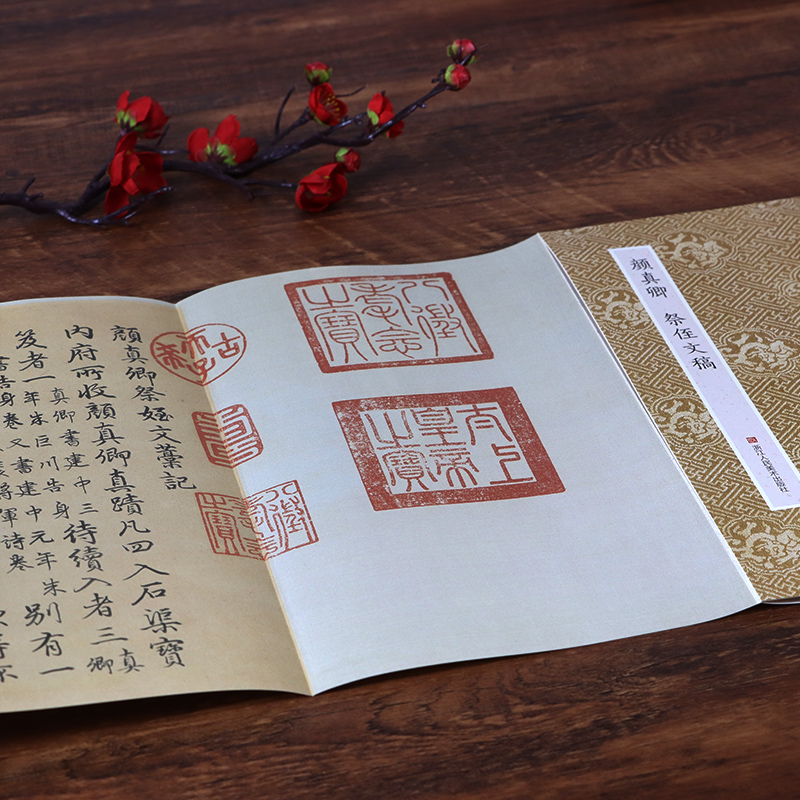 颜真卿 祭侄文稿
浙江人民美术出版社
八徵耄念之寶
太上皇帝之寶
古希天子
壽
八徵耄念之寶
顏真卿祭姪文藁記
內府所收顏真卿真蹟凡四入石渠寶
笈者一
真卿書建中三
年朱巨川告身
待續入者三
真
卿
書告身卷又書建中元年朱
將軍詩卷
別有一